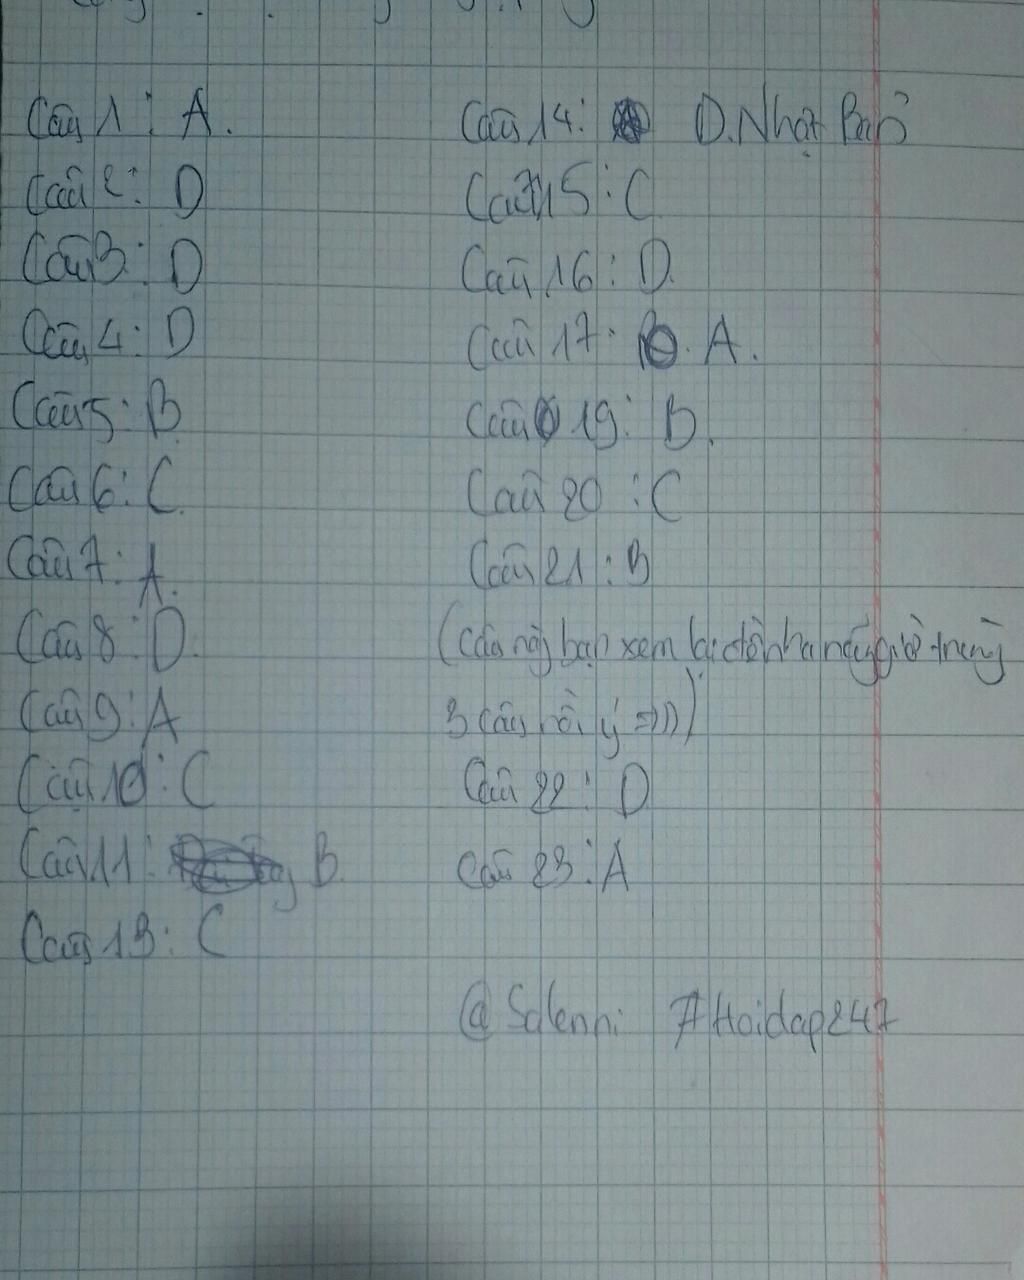 Câu 1: A.
Câu 2: D
Câu 3: D
Câu 4: D
Câu 5: B
Câu 6: C
Câu 7: A.
Câu 8: D.
Câu 9: A
Câu 10: C
Câu 11: B
Câu 13: C
Câu 14: D. Nhật Bản
Câu 15: C
Câu 16: D.
Câu 17: A.
Câu 19: B.
Câu 20: C
Câu 21: B
(câu này bạn xem lại đề nha nãy giờ trùng
3 câu rồi ý =)))
Câu 22: D
Câu 23: A
@Salenni #Hoidap247